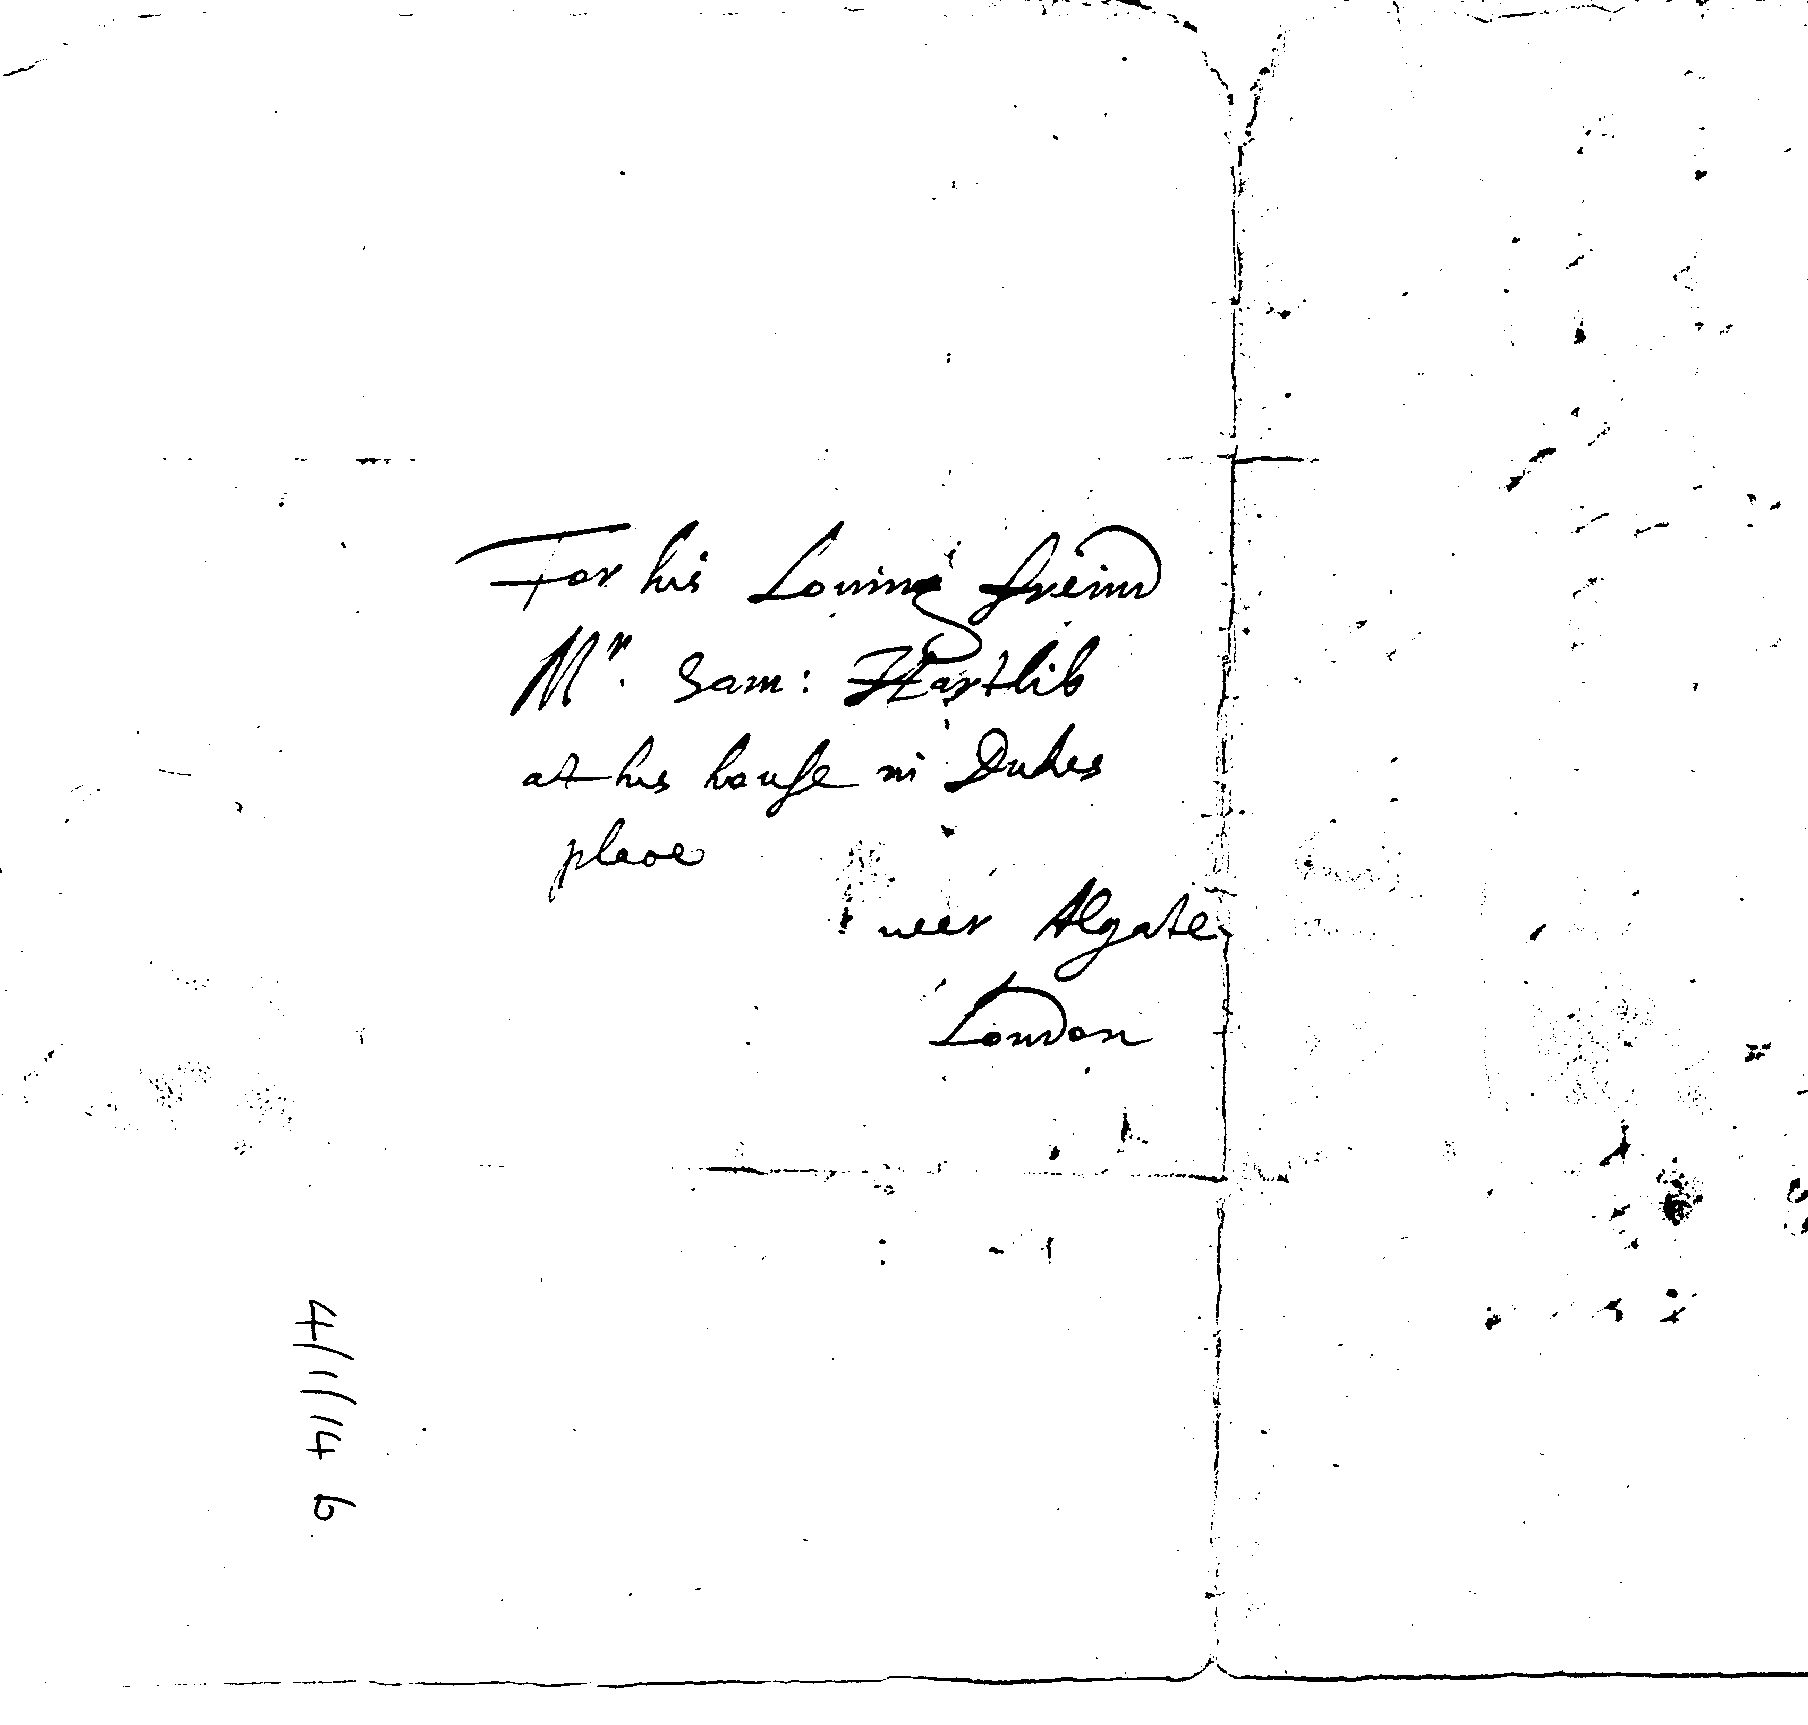 For his Louing freind
Mr. Sam: Hartlib
at his house in Dukes
place
neer Algate
London
4/1/14 b